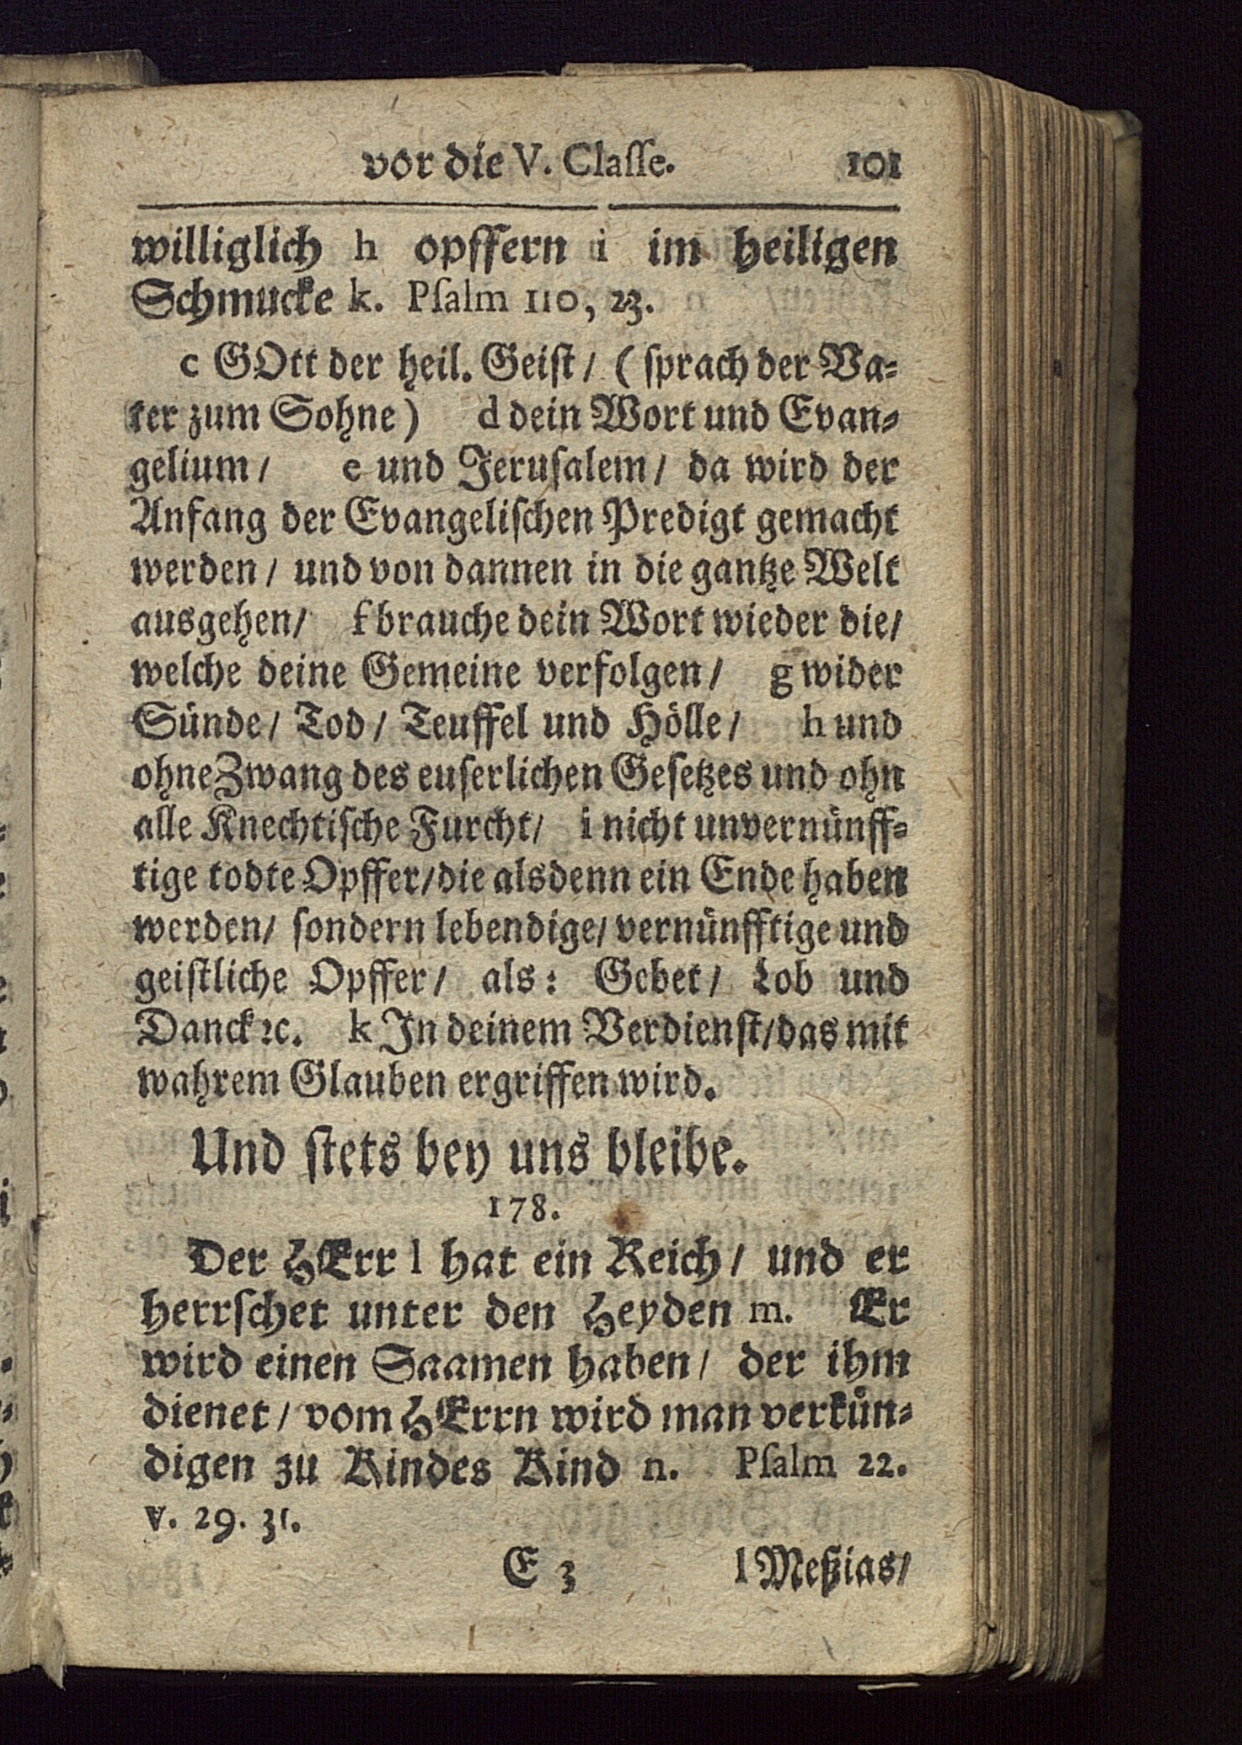 vor die V. Classe. 101
williglich h opffern i im heiligen
Schmucke k. Psalm 110, 23.
c GOtt der heil. Geist / ( sprach der Va-
ter zum Sohne ) d dein Wort und Evan-
gelium / e und Jerusalem / da wird der
Anfang der Evangelischen Predigt gemacht
werden / und von dannen in die gantze Welt
ausgehen / f brauche dein Wort wieder die /
welche deine Gemeine verfolgen / g wider
Sünde / Tod / Teuffel und Hölle / h und
ohne Zwang des euserlichen Gesetzes und ohn
alle Knechtische Furcht / i nicht unvernünff-
tige todte Opffer / die alsdenn ein Ende haben
werden / sondern lebendige / vernünfftige und
geistliche Opffer / als : Gebet / Lob und
Danck ꝛc. k In deinem Verdienst / das mit
wahrem Glauben ergriffen wird.
Und stets bey uns bleibe.
178.
Der HErr l hat ein Reich / und er
herrschet unter den Heyden m. Er
wird einen Saamen haben / der ihm
dienet / vom HErrn wird man verkün-
digen zu Kindes Kind n. Psalm 22.
v. 29. 31.
E 3 l Meßias /